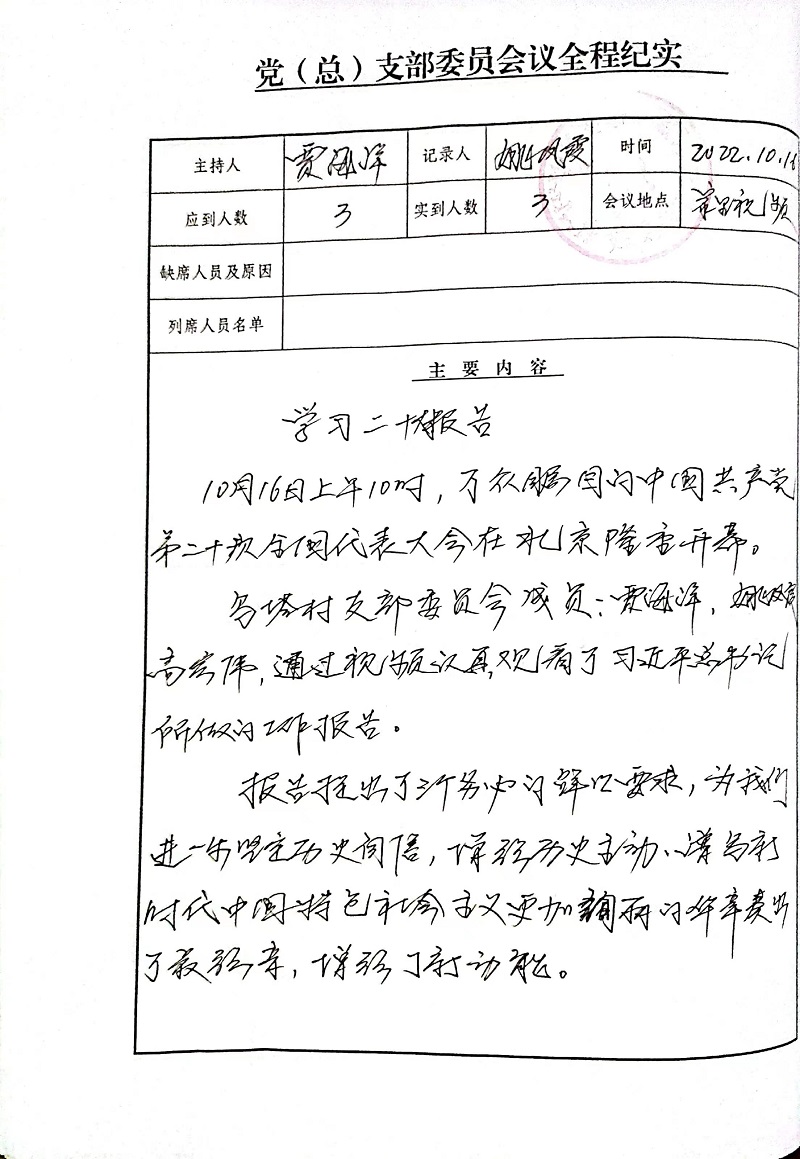 党（总）支部委员会议全程纪实
主持人 贾海洋 记录人 姚凤霞 时间 2022.10.16
应到人数 3 实到人数 3 会议地点 视频
缺席人员及原因
列席人员名单
主要内容
学习二十大报告
10月16日上午10时，万众瞩目的中国共产党
第二十次全国代表大会在北京隆重开幕。
乌塔村支部委员会成员：贾海洋，姚凤霞
高宏伟，通过视频认真观看了习近平总书记
所做的工作报告。
报告提出了三个务必的鲜明要求，为我们
进一步坚定历史自信，增强历史主动、谱写新
时代中国特色社会主义更加绚丽的华章奏出
了最强音，增强了新动能。